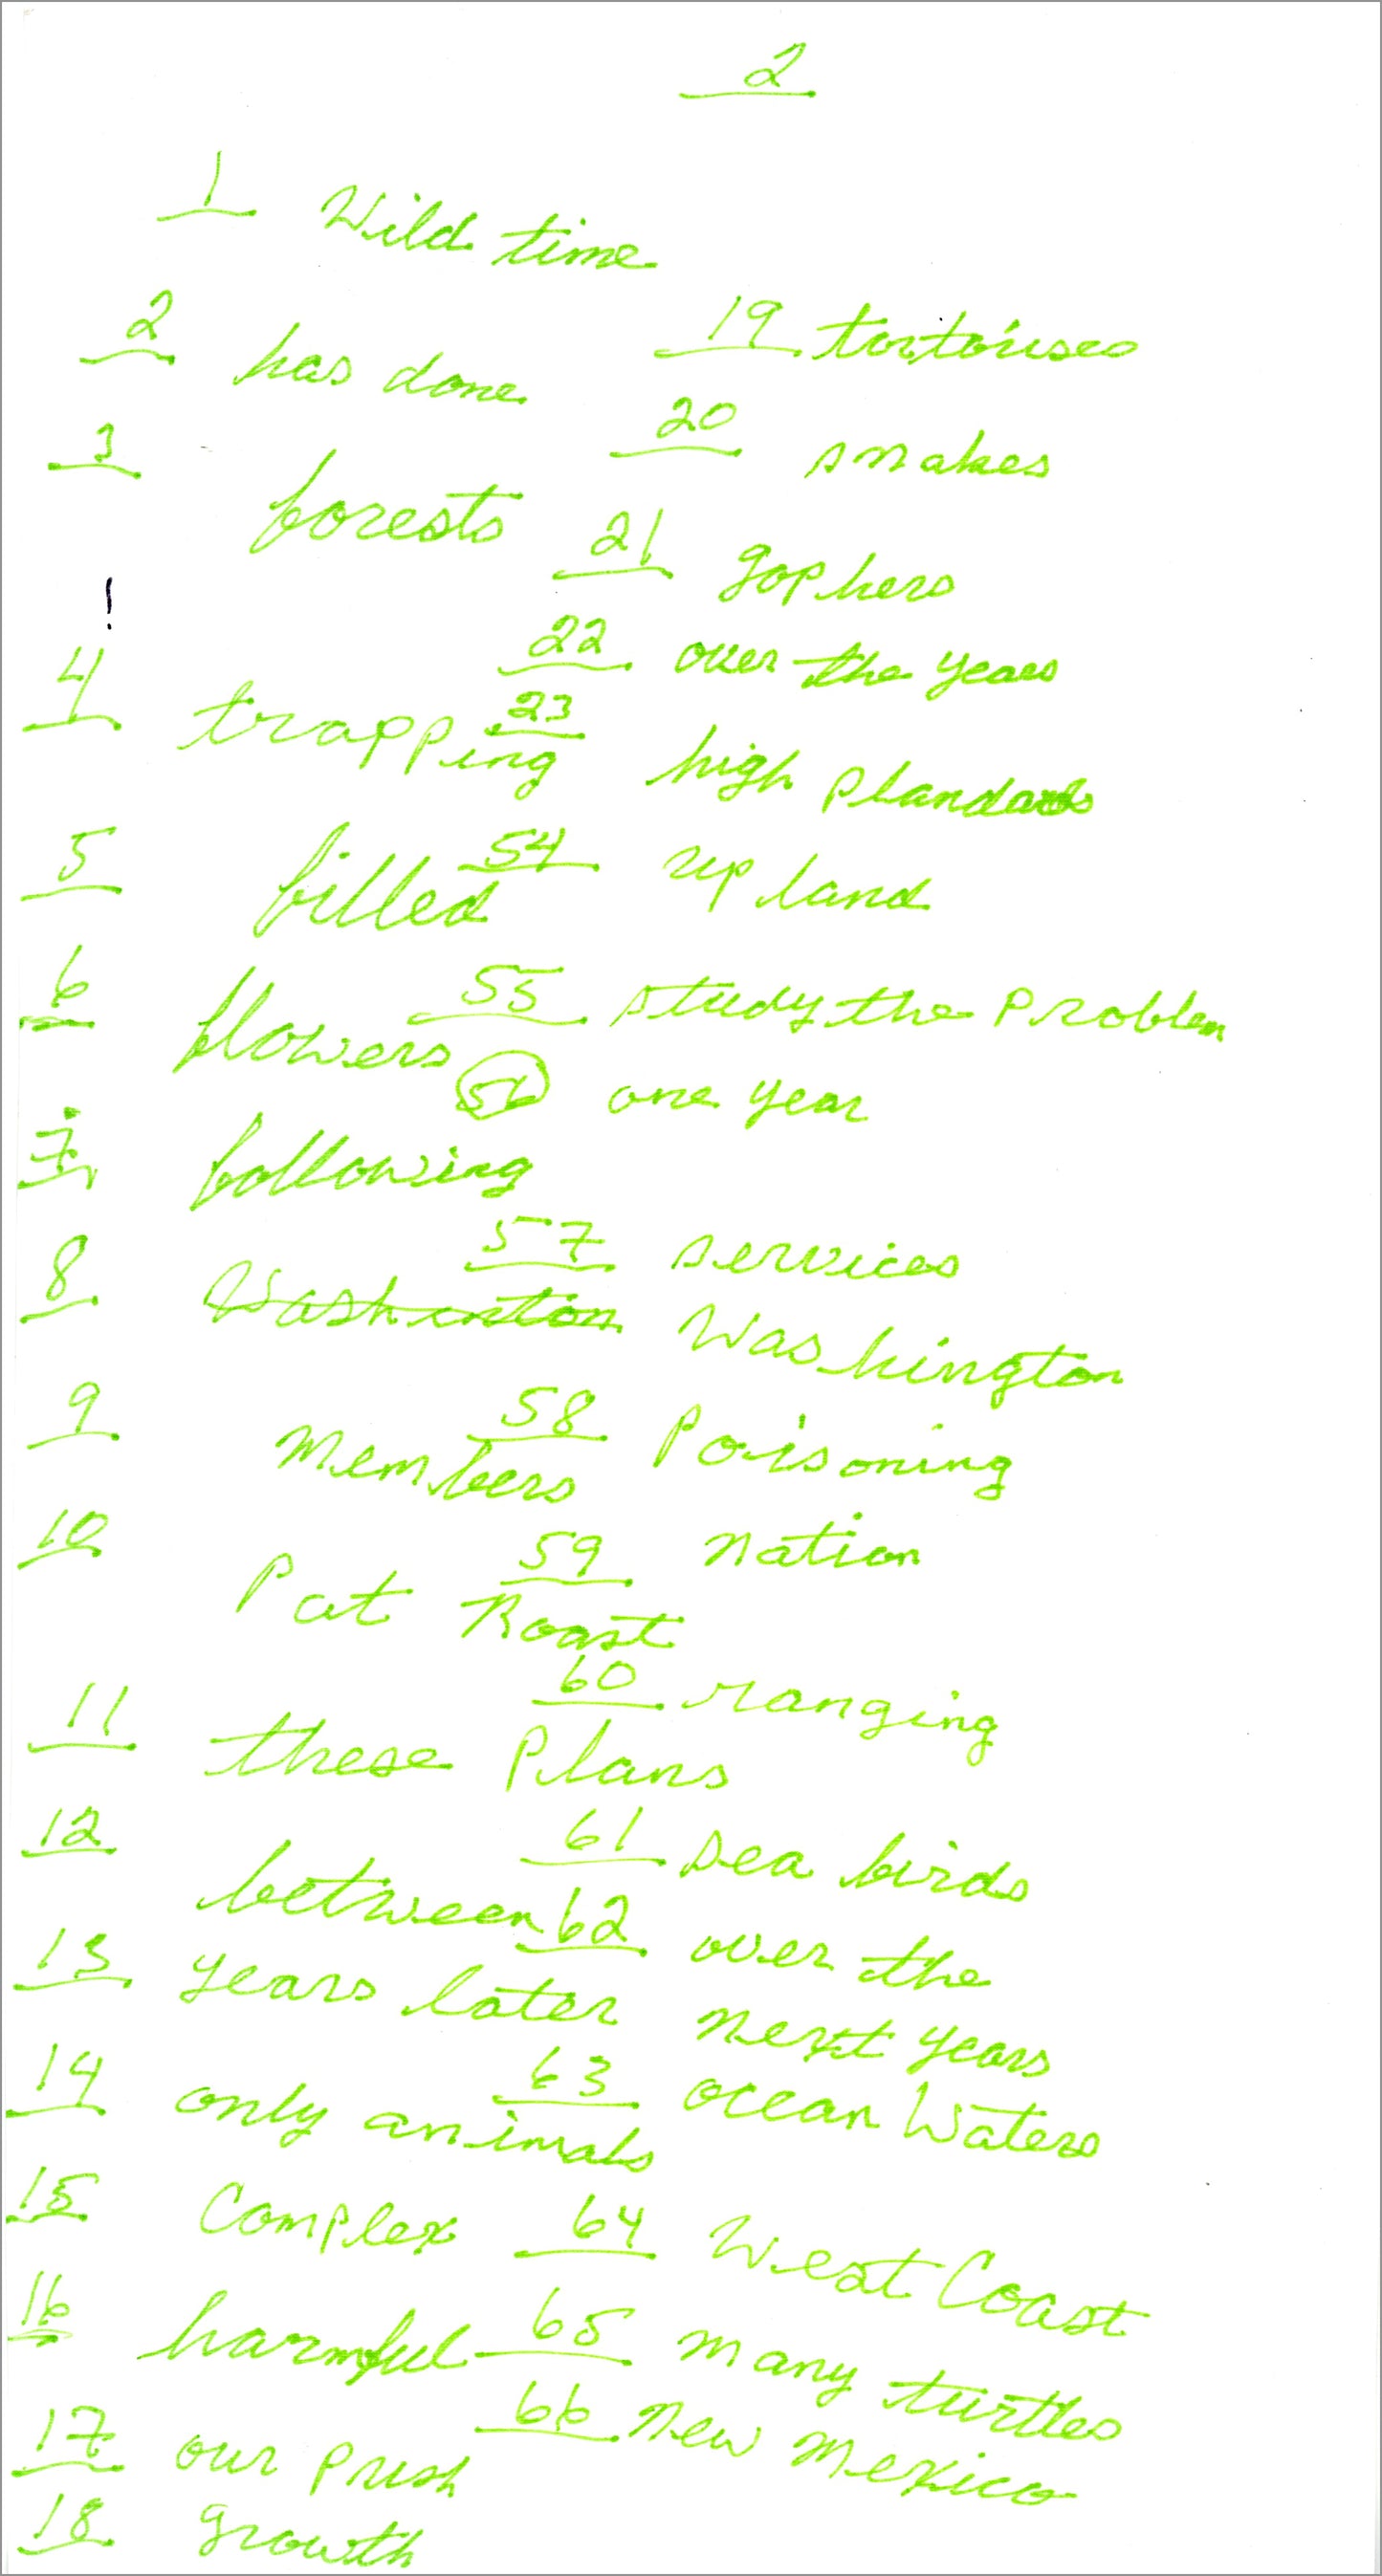 2
1 Wild time
2 has done
3 forests
!
4 trapping
5 filled
6 flowers
7 following
8 Washinton Washington
9 Members
10 Pat Roast
11 these Plans
12 between
13 years later
14 only animals
15 Complex
16 harmful
17 our push
18 growth
19 tortoises
20 snakes
21 gophers
22 over the years
23 high
54 up land
55 study the Problem
56 one year
57 services
58 Poisoning
59 nation
60 ranging
61 sea birds
62 over the
next years
63 ocean Waters
64 West Coast
65 many turtles
66 New Mexico